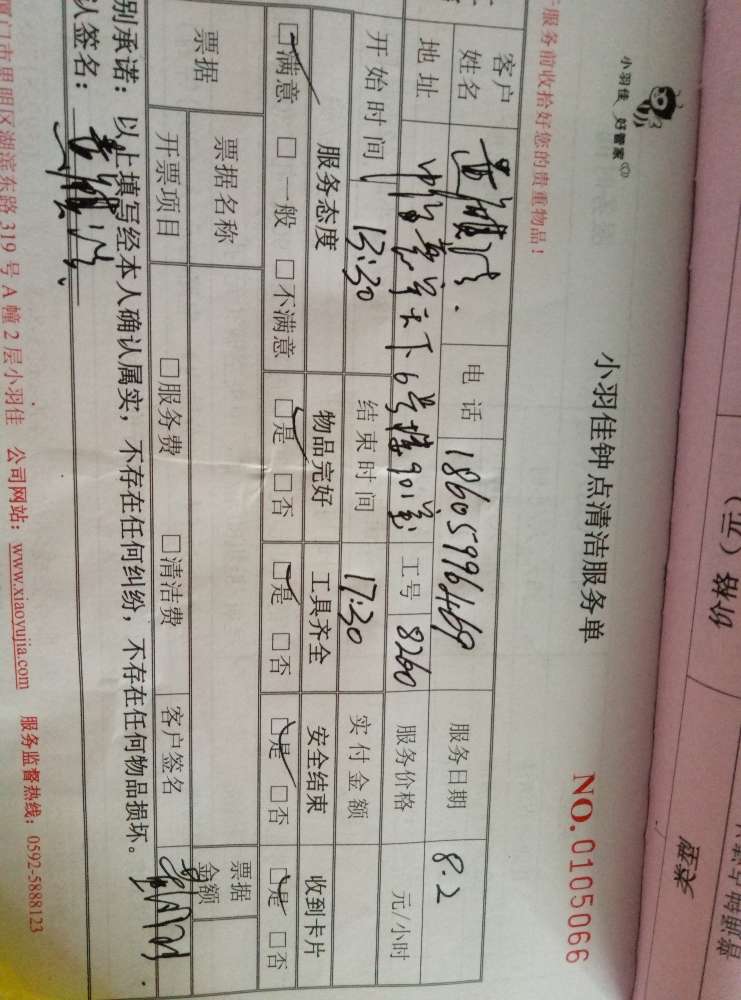 小羽佳 好管家
小羽佳钟点清洁服务单
NO.0105066
服务前收拾好您的贵重物品！
客户姓名 电话 18605996469 服务日期 8.2
地址 天下6号楼901室 工号 8260 服务价格 元/小时
开始时间 13:30 结束时间 17:30 实付金额
服务态度 物品完好 工具齐全 安全结束 收到卡片
☑满意 □一般 □不满意 ☑是 □否 ☑是 □否 ☑是 □否 ☑是 □否
票据 票据名称 票据金额
开票项目 □服务费 □清洁费 客户签名
别承诺：以上填写经本人确认属实，不存在任何纠纷，不存在任何物品损坏。
认签名：
厦门市思明区湖滨东路319号A幢2层小羽佳 公司网站：www.xiaoyujia.com 服务监督热线：0592-5888123
价格